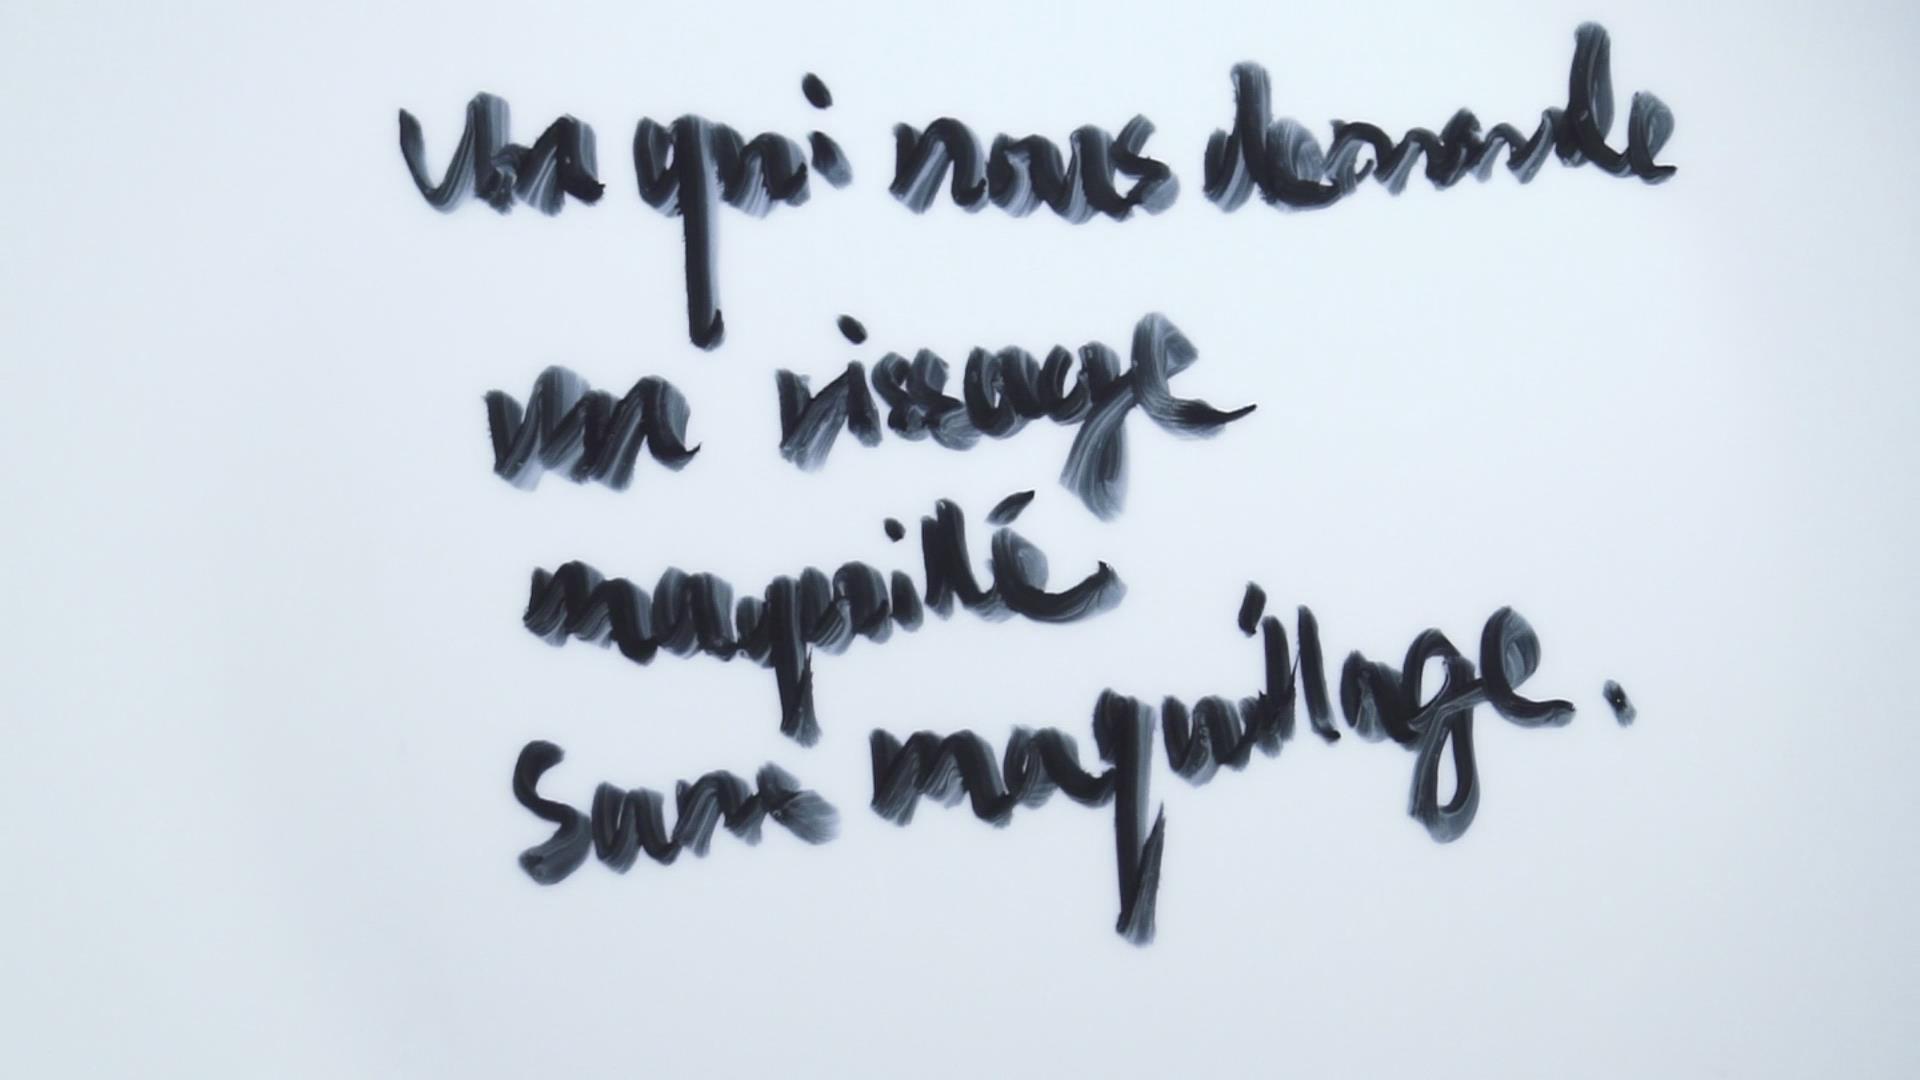 un qui nous demande
un vissage
maquillé
Sans maquillage.